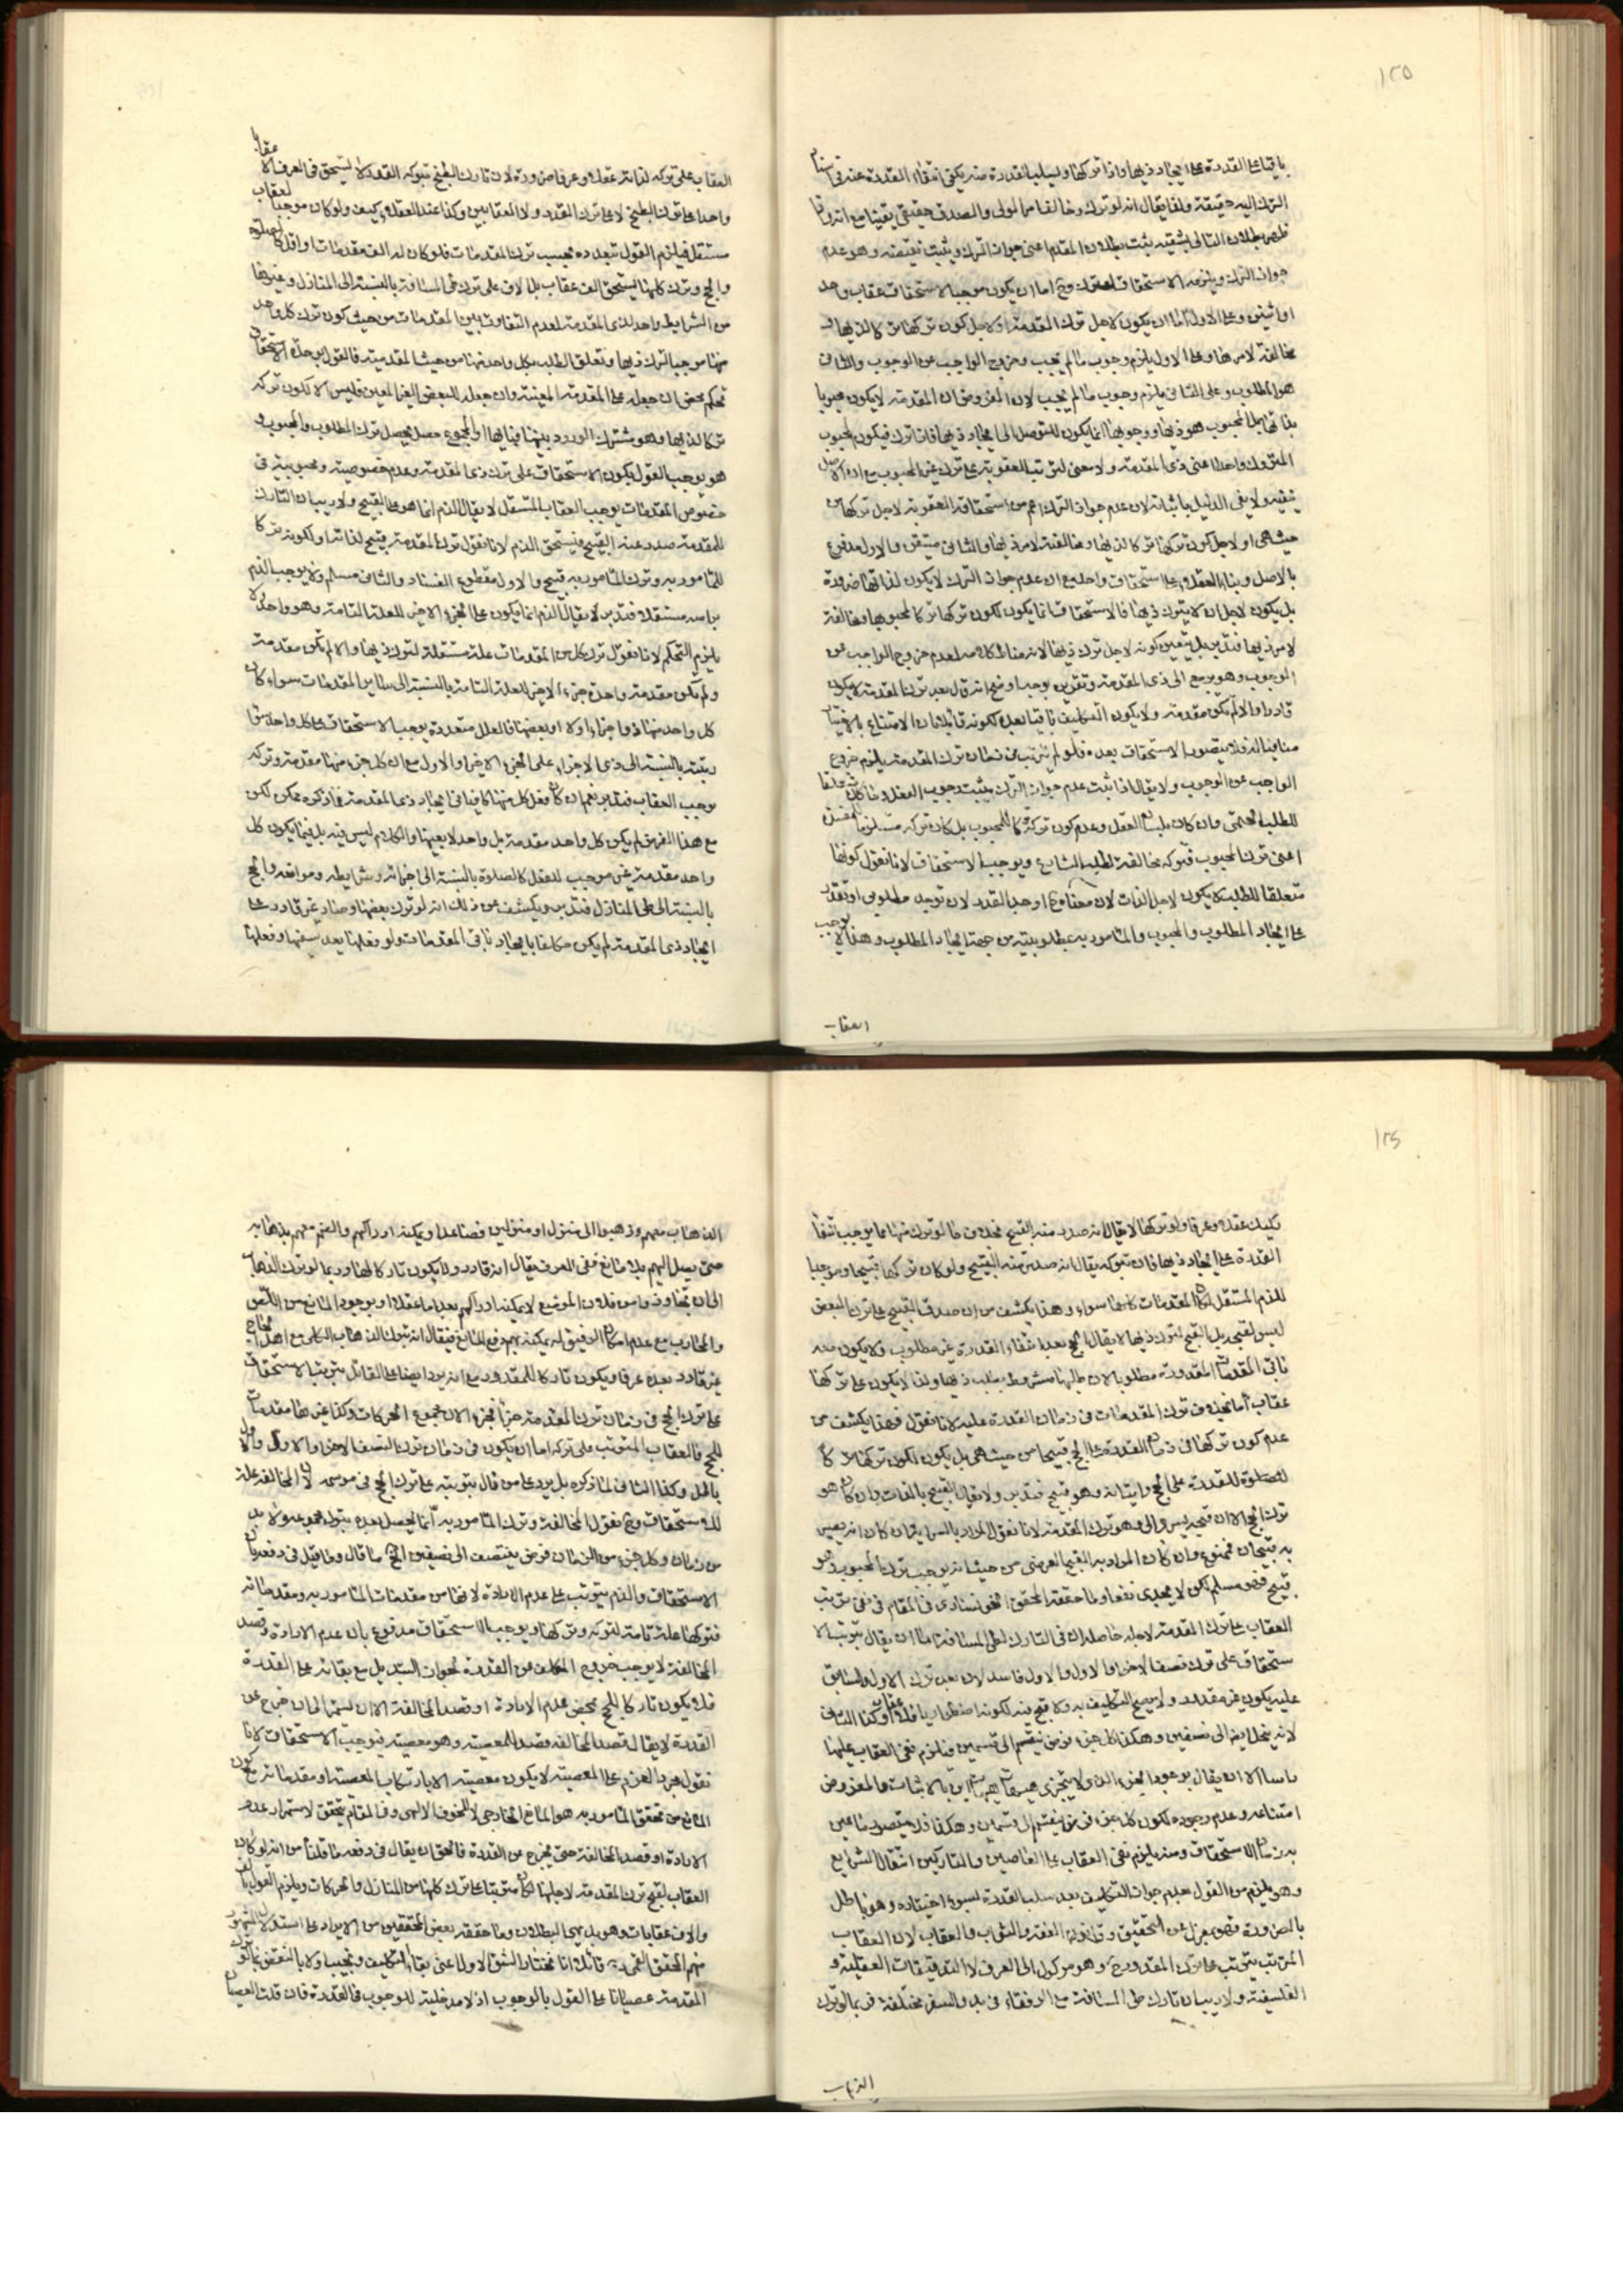 ١٢٥
باقيا على القدرة على ايجاد ذيها واذا تركها وليسلب القدرة منه يكفى انتفاء القدرة عنه فى
الترك اليه حقيقة ولذا يقال انه لو ترك وخالفا من المولى والصدق حقيقى يقينا مع انه
ظهر بطلان التالى بشقيه يثبت بطلان المقدم اعنى جواز الترك ويثبت نقيضه وهو عدم
جواز الترك ويلزمه الاستحقاق اما ان يكون موجبا لاستحقاق عقاب واحد
او اثنين وعلى الاول اما ان يكون لاجل ترك المقدمة او لاجل كون تركها تركا لذيها
مخالفة لامرها وعلى الاول يلزم وجوب ما لم يجب وخروج الواجب عن الوجوب والثانى
هو المطلوب وعلى الثانى يلزم وجوب ما لم يجب لان المفروض ان المقدمة لا يكون محبوبا
بذاتها بل المحبوب هو ذيها ووجوبها انما يكون للتوصل الى ايجاد ذيها فاذا ترك فيكون المحبوب
المتروك واحدا اعنى ذى المقدمة ولا معنى لترتب العقوبة على ترك غير المحبوب مع ان الاصل
ينفيه ولا يفى الدليل باثباته لان عدم جواز الترك اعم من استحقاق العقوبة لاجل تركها من
حيث هى او لاجل كون تركها تركا لذيها ومخالفة لامر ذيها والثانى متيقن والاول مدفوع
بالاصل وبناء العقلاء على استحقاق واحد مع ان عدم جواز الترك لا يكون لذاتها ضرورة
بل يكون لاجل ان لا يترك ذيها فالاستحقاق انما يكون لكون تركها تركا لمحبوبها ومخالفة
لامر ذيها فتدبر بل يتعين كونه لاجل ترك ذيها لانه مناط كلامه لعدم خروج الواجب عن
الوجوب وهو يرجع الى ذى المقدمة وتقرير بوجه اوضح انه قال بعد ترك المقدمة لا يكون
قادرا والا لم تكن مقدمة ولا يكون التكليف باقيا بعده لكونه قائلا بان الامتناع بالاختيار
منافيا له فلا يتصور الاستحقاق بعده فلو لم يترتب فى زمان ترك المقدمة يلزم خروج
الواجب عن الوجوب ولا يقال اذا ثبت عدم جواز الترك يثبت وجوب الفعل
للطلب الحتمى وان كان بلسان العقل وعدم كون تركه تركا للمحبوب بل كان تركه مستلزما
اعنى ترك المحبوب فتركه مخالفة لطلب الشارع ويوجب الاستحقاق لانا نقول كونها
متعلقا للطلب لا يكون لاجل الذات لان معناه اوجد القدر لان توجد مطلوبى او تقدر
على ايجاد المطلوب والمحبوب والمامور به مطلوبيته من جهة ايجاد المطلوب وهذا لا يوجب
العقاب
العقاب على تركه لذاته عقلا وعرفا ضرورة لان تارك الطبخ بتركه القدر لا يستحق فى العرف الا عقابا
واحدا على ترك الطبخ لا على ترك القدر ولا العقابين وكذا عند العقلاء كيف ولو كان موجبا لعقاب
مستقل فيلزم القول بتعدده بحسب ترك المقدمات فلو كان له الف مقدمات او اقل كالصلوة
والحج وترك كلها يستحق الف عقاب بل الاف على ترك طى المسافة بالنسبة الى المنازل وغيرها
من الشرايط واحد لذى المقدمة لعدم التفاوت بين المقدمات من حيث كون ترك كل واحد
منها موجبا لترك ذيها وتعلق الطلب بكل واحد منها من حيث المقدمية فالقول بوحدة الاستحقاق
تحكم محض ان جعله على المقدمة المعينة وان جعله للبعض الغير المعين فليس الا لكون تركه
تركا لذيها وهو مشترك الورود بينها فبايها او المجموع حصل يحصل ترك المطلوب والمحبوب
هو يوجب القول بكون الاستحقاق على ترك ذى المقدمة وعدم خصوصية ومحبوبية فى
خصوص المقدمات يوجب العقاب المستقل لا يقال الذم انما هو على القبيح ولا ريب ان التارك
للمقدمة صدر عنه القبيح فيستحق الذم لانا نقول ترك المقدمة قبيح لذاته او لكونه تركا
للمامور به وترك المامور به قبيح والاول مقطوع الفساد والثانى مسلم ولا يوجب الذم
براسه مستقلا فتدبر لا يقال الذم انما يكون على الجزء الاخير للعلة التامة وهو واحد ولا
يلزم التحكم لانا نقول ترك كل من المقدمات علة مستقلة لترك ذيها والا لم تكن مقدمة
ولم يكن مقدمة واحدة جزء الاخير لعلة التامة بالنسبة الى ساير المقدمات سواء كان
كل واحد منها ذو اجزاء اولا او بعضها فالعلل متعددة يوجب الاستحقاق على كل واحد منها
ريتبه بالنسبة الى ذى الاجزاء على الجزء الاخير او الاول مع ان كل جزء منها مقدمة وتركه
يوجب العقاب فتدبر نعم ان كان فعل كل منها كافيا فى ايجاد ذى المقدمة فما ذكره ممكن لكن
مع هذا الفرض لم يكن كل واحد مقدمة بل واحد لا بعينها والكلام ليس فيه بل فيما يكون كل
واحد مقدمة غير موجب للفعل كالصلوة بالنسبة الى اجزائه وشرايطه وموانعه والحج
بالنسبة الى طى المنازل فتدبر ويكشف عن ذلك انه لو ترك بعضها وصار غير قادر على
ايجاد ذى المقدمة لم يكن مكلفا بايجاد باقى المقدمات ولو فعلها بعد بعضها وفعلها
١٢٦
تكليف عقلا وعرفا ولو تركها لا يقال انه صدر منه القبيح بخلاف ما لو ترك منها ما يوجب انتفاء
القدرة على ايجاد ذيها فان تركه يقال انه صدر منه القبيح ولو كان تركها قبيحا وموجبا
للذم المستقل لكان المقدمات كلها سواء وهذا يكشف من ان صدق القبيح على ترك البعض
ليس لقبحه بل القبح لترك ذيها لا يقال الحج بعد انتفاء القدرة غير مطلوب فلا يكون
باقى المقدمات المقدورة مطلوبا لان طلبها مشروط بطلب ذيها ولذا لا يكون على تركها
عقاب اما بخلاف ترك المقدمات فى زمان القدرة عليه لانا نقول فهذا يكشف عن
عدم كون تركها فى زمان القدرة على الحج قبيحا من حيث هى بل يكون لكون تركها تركا
للقدرة على الحج واتيانه وهو قبيح فتدبر ولا يقال القبيح بالذات وان كان هو
ترك الحج الا ان قبحه يسرى الى وهو ترك المقدمة لانا نقول المراد بالسراية ان كان انه يصير
به قبيحان فممنوع وان كان المراد به القبيح العرضى من حيث انه يوجب ترك المحبوب وهو
قبيح فهو مسلم لكن لا يجدى نفعا ولما حققه المحقق الخوانسارى فى المقام فى نفى ترتب
العقاب على ترك المقدمة لاجله حاصله ان فى التارك لطى المسافة اما ان يقال بترتب الا
ستحقاق على ترك نصف الاخر او الاول والاول فاسد لان بعد ترك الاول والسابق
عليه يكون غير مقدور ولا يصح التكليف به ولا قبح فيه لكونه اضطراريا فلا عقاب وكذا الثانى
لانه ينحل ايضا الى نصفين وهكذا كل جزء فرض ينقسم الى قسمين فيلزم نفى العقاب عليهما
راسا الا ان يقال بوجود الجزء الذى لا يتجزى بالاثبات والمفروض
امتناعه وعدم وجوده لكون كل جزء فرض ينقسم الى قسمين وهكذا فلا يتصور ما يعين
به زمان الاستحقاق ومنه يلزم نفى العقاب على العاصين والتاركين انتقال الشرايع
وهو يلزم من القول بعدم جواز التكليف بعد سلب القدرة لسوء اختياره وهو باطل
بالضرورة فهو بمعزل عن التحقيق وقانون الفقه والثواب والعقاب لان العقاب
المترتب يترتب على ترك المقدور وهو موكول الى العرف لا التدقيقات العقلية و
الفلسفية ولا ريب ان تارك طى المسافة مع الرفقاء فى بلد والسفر مختلفة فربما لو ترك
الذهاب
الذهاب معهم وذهبوا الى منزل او منزلين فصاعدا ويمكنه ادراكهم والعزم معهم بذهابه
حتى يصل اليهم بلا مانع ففى العرف يقال انه قادر ولا يكون تاركا لها وربما لو ترك الذهاب
الى ان تجاوز وامن فلان الموضع لا يمكنه ادراكهم بعد اما عقلا او بوجود المانع من اللص
والمحارب مع عدم امكان الرفيق له يمكنه بهم دفع المانع فيقال انه بترك الذهاب الى مع هذا الحاج
غير قادر بعده عرفا ويكون تاركا للمقدور مع انه يرد ايضا على القائل بترتب الاستحقاق
على ترك الحج فى زمان ترك المقدمة جزءا لجزء الان مجموع الحركات وكذا غيرها مقدمات
للحج فالعقاب المترتب على تركه اما ان يكون فى زمان ترك النصف الاخر او الاول والاول
باطل وكذا الثانى لما ذكره بل يرد على من قال بترتبه على ترك الحج فى موسمه لان المخالفة علة
للاستحقاق وح نقول المخالفة وترك المامور به انما يحصل بعده بترك مجموعه ولا بد
من زمان وكل جزء من الزمان فرض ينتصف الى نصفين الخ ما قال وما قيل فى دفعه بان
الاستحقاق والذم يترتب على عدم الارادة لانها من مقدمات المامور به ومقدماته
فتركها علة تامة لتركه وتركها ويوجب الاستحقاق مدفوع بان عدم الارادة وقصد
المخالفة لا يوجب خروج المكلف عن القدرة لجواز التبديل مع بقائه على القدرة
فلا يكون تاركا للحج بمحض عدم الارادة او قصد المخالفة الا ان يستمر الى ان خرج عن
القدرة لا يقال قصد المخالفة قصد المعصية وهو معصية فيوجب الاستحقاق لانا
نقول مجرد العزم على المعصية لا يكون معصية الا بارتكاب المعصية او مقدماته مع كون
المانع من تحقق المامور به هو المانع الخارجى لا الخوف الالهى وفى المقام يتحقق لاستمرار عدم
الارادة او قصد المخالفة حتى يخرج عن القدرة فالحق ان يقال فى دفعه ما قلنا من انه لو كان
العقاب لقبح ترك المقدمة لاجلها لكان مترتبا على ترك كلها من المنازل والحركات ويلزم القول بالف
والاف عقابات وهو بديهى البطلان وما حققه بعض المحققين من الايراد على استدلال المشهور
منهم المحقق القمى ره قائلا انا نختار الشق الاول اعنى بقاء التكليف ونجيب اولا بالنقض بما لو ترك
المقدمة عصيانا على القول بالوجوب اذ لا مدخلية للوجوب فى القدرة فان قلت العصيان